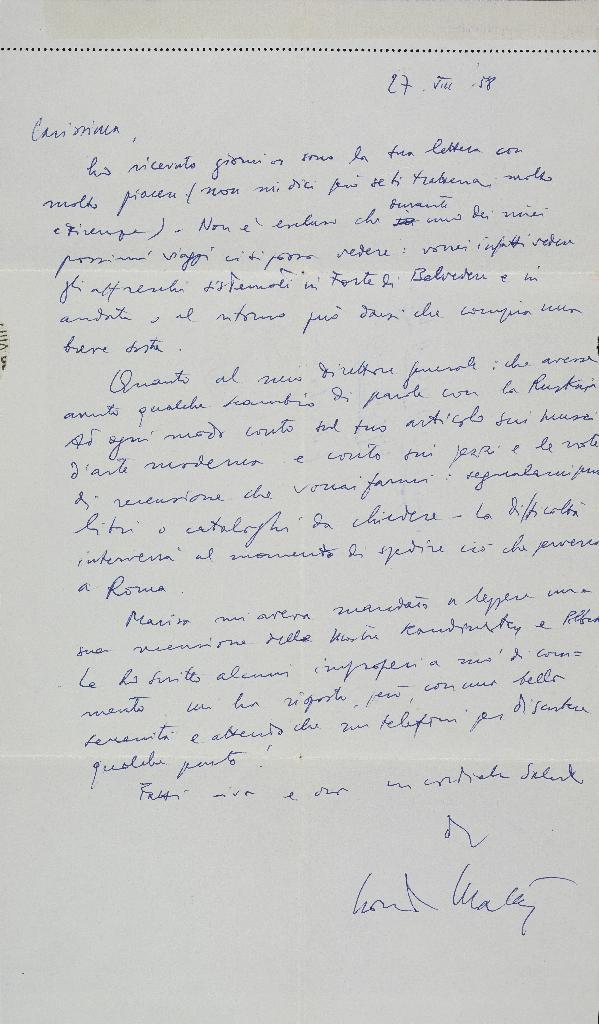 27. VIII '58
Carissima,
ho ricevuto giorni or sono la tua lettera con
molto piacere (non mi dici però se ti tratterrai molto
a Firenze). Non è escluso che durante uno dei miei
prossimi viaggi ci si possa vedere: vorrei infatti vedere
gli affreschi sistemati in Forte di Belvedere e in
andata o al ritorno può darsi che compia una
breve sosta.
Quanto al mio direttore generale: che avesse
avuto qualche scambio di parole con la
Ad ogni modo conto sul tuo articolo sui musei
d'arte moderna e conto sui pezzi e le note
di recensione che vorrai farmi: segnalami pure
libri o cataloghi da chiedere - La difficoltà
interverrà al momento di spedire ciò che perverrà
a Roma.
Marisa mi aveva mandato a leggere una
sua recensione della Mostra Kandinsky e
Le ho scritto alcuni improperi a mo' di com=
mento, mi ha risposto, però, con una bella
serenità e attendo che mi telefoni per discutere
qualche punto!
Fatti viva e abbi un cordiale saluto
dal